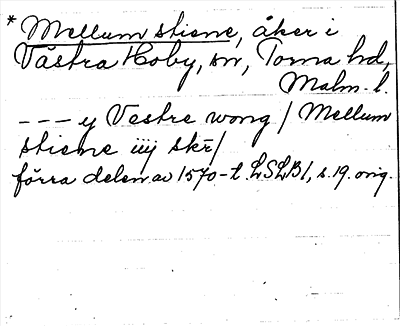 * Mellum stiene, åker i
Västra Hoby, sn, Torna hd,
Malm. l.
--- y Vestre wong / Mellum
stiene iiij skr/
förra delen av 1570-t. LSLB1, s.19. orig.